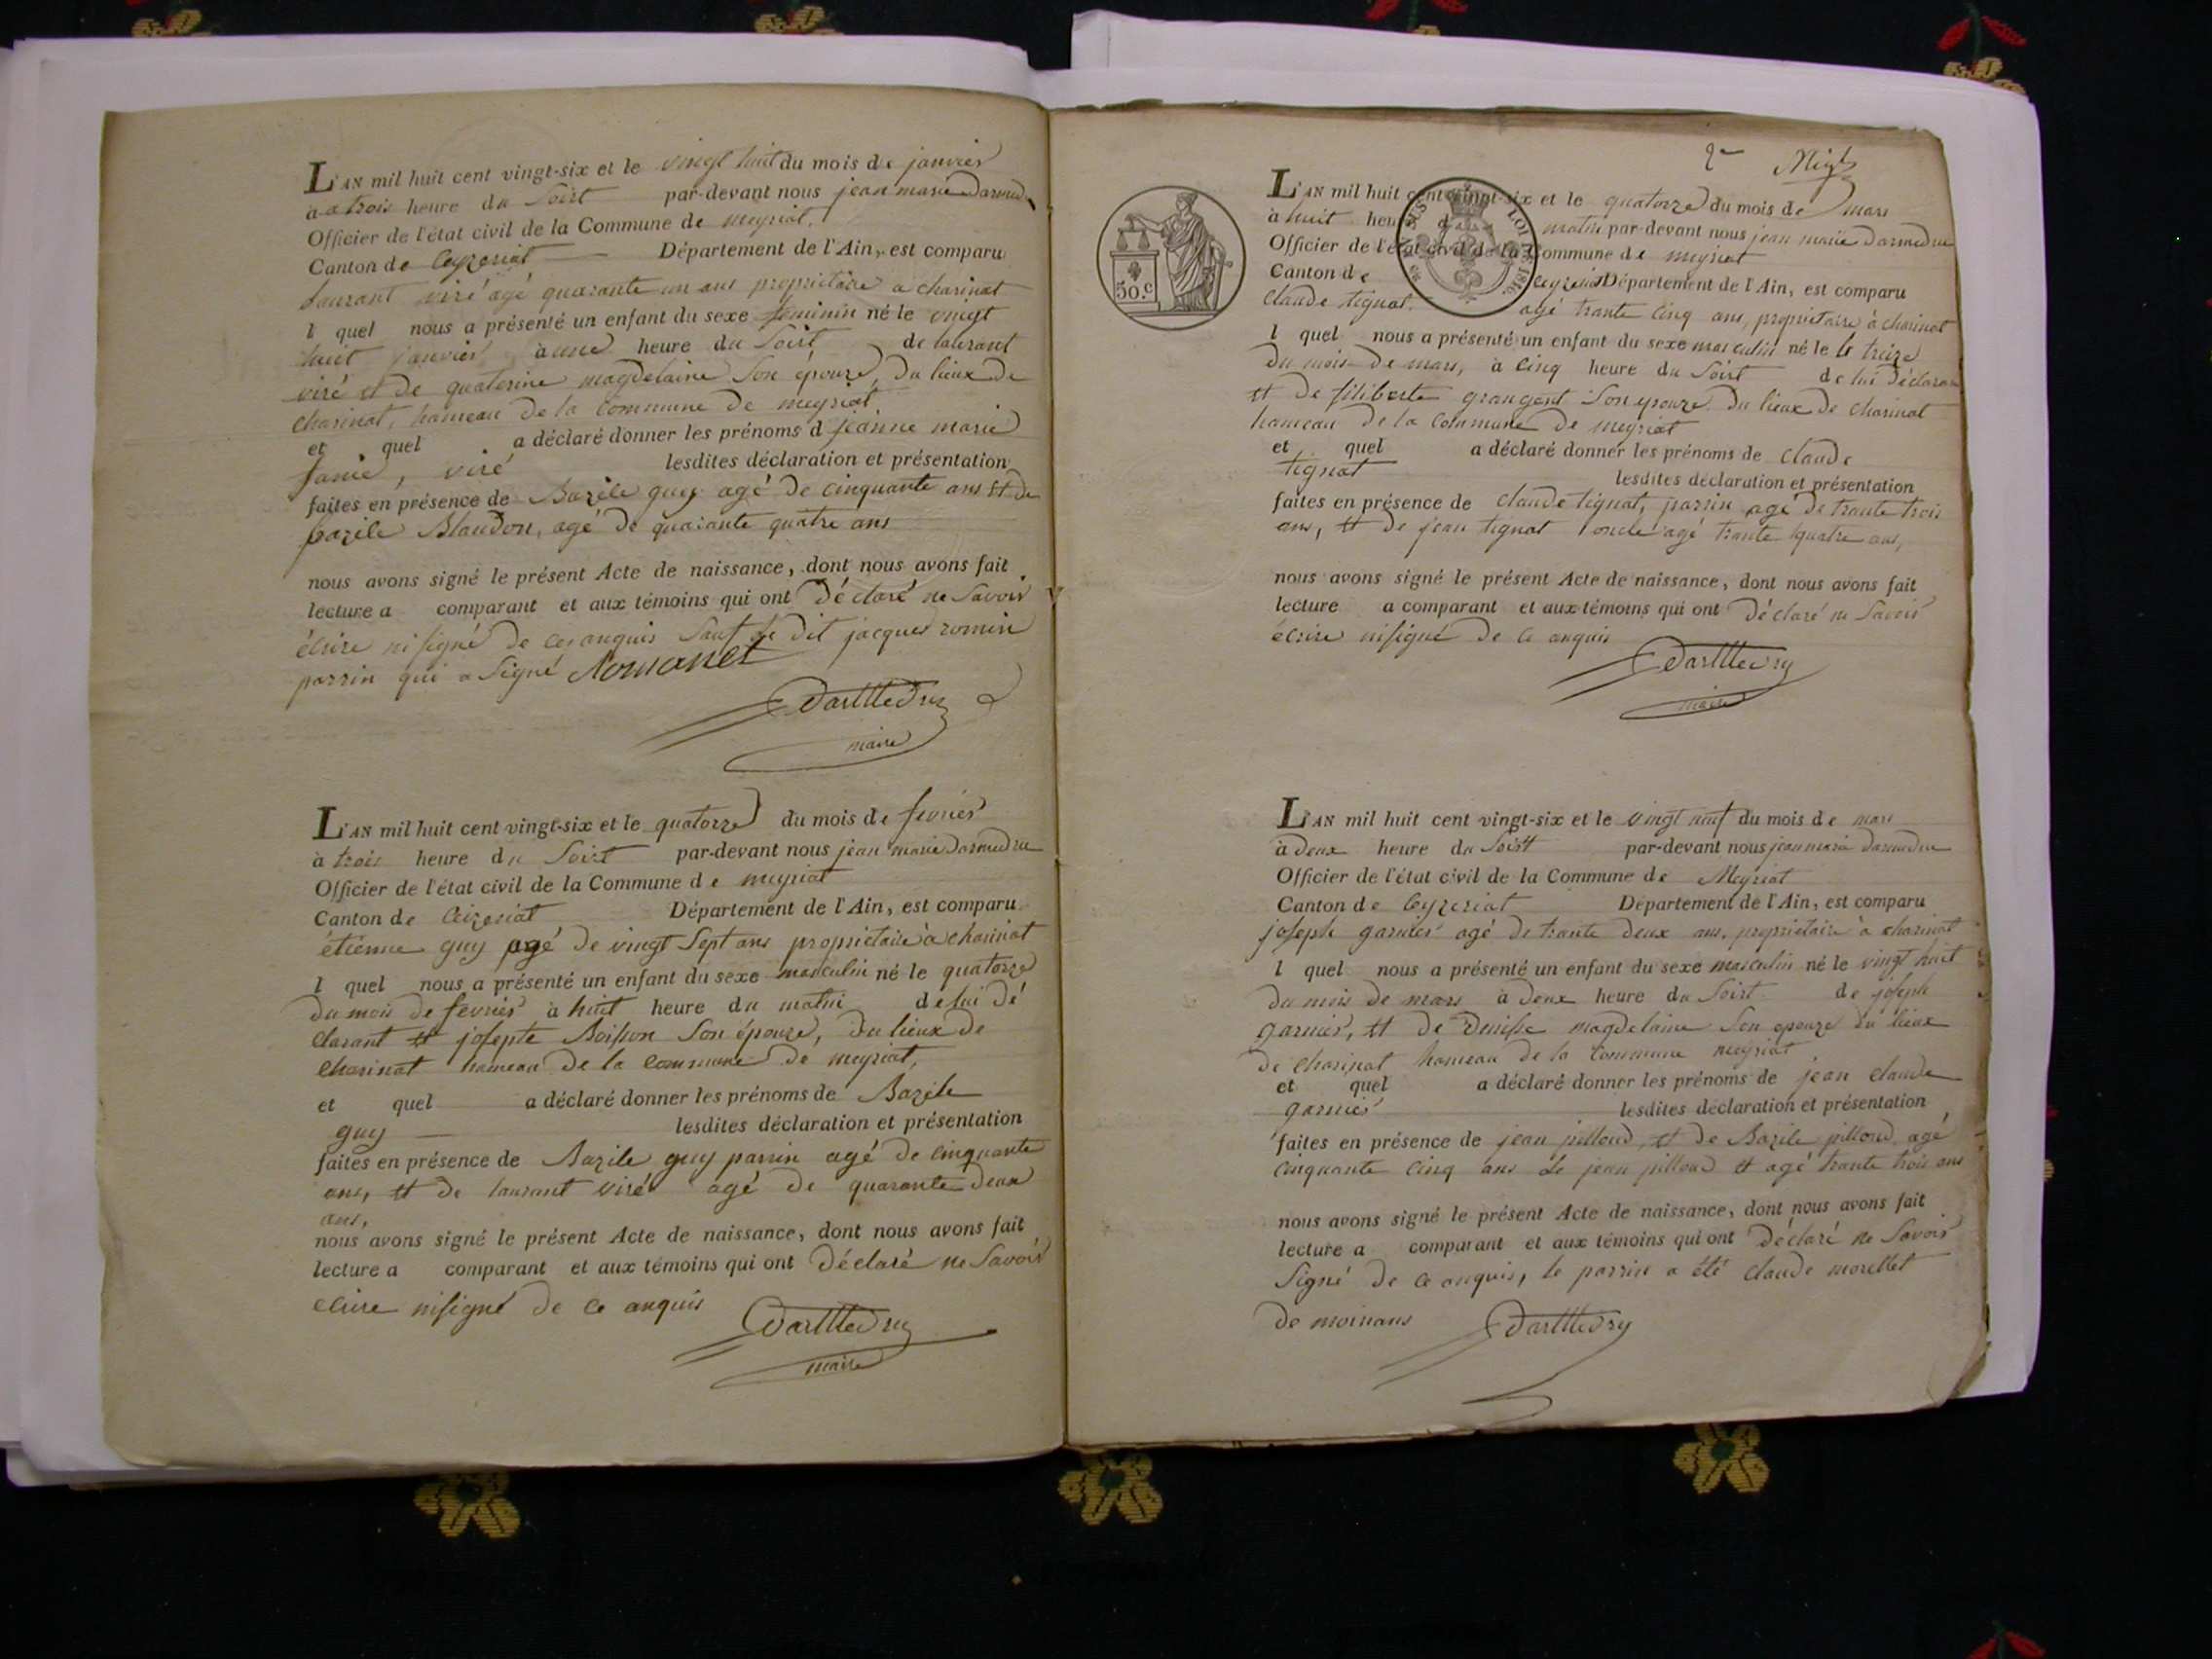 L'AN mil huit cent vingt-six et le vingt huit du mois de janvier
à a trois heure du Soirt par-devant nous jean marie Darmedru
Officier de l'état civil de la Commune de meyriat.
Canton de Ceyzeriat Département de l'Ain, est comparu
Laurant viré agé quarante un ans proprietaire a charinat
l quel nous a présenté un enfant du sexe feminin né le vingt
huit janvier à une heure du Soirt de laurant
viré et de quaterine magdelaine Son épouze, Du lieux De
charinat, hameau De la commune De meyriat
et quel a déclaré donner les prénoms d jeanne marie
viré lesdites déclaration et présentation
faites en présence de Bazile guy agé De cinquante ans et de
bazile Blandon, agé De quarante quatre ans
nous avons signé le présent Acte de naissance, dont nous avons fait
lecture a comparant et aux témoins qui ont Déclaré ne Savoir
écrire ni signé De ce anquis Sauf le Dit jacques romin
parrin qui a Signé
Darmedru
maire
L'AN mil huit cent vingt-six et le quatorze du mois de fevrier
à trois heure du Soirt par-devant nous jean marie Darmedru
Officier de l'état civil de la Commune de meyriat
Canton de Ceizeriat Département de l'Ain, est comparu
étienne guy agé De vingt Sept ans proprietaire à charinat
l quel nous a présenté un enfant du sexe masculin né le quatorze
Du mois De fevrier à huit heure du matin de lui Dé
clarant et josepte Boisson Son épouze, Du lieux De
charinat hameau De la commune De meyriat,
et quel a déclaré donner les prénoms de Bazile
guy lesdites déclaration et présentation
faites en présence de Bazile guy parrin agé De cinquante
ans, et De laurant viré agé De quarante Deux
ans,
nous avons signé le présent Acte de naissance, dont nous avons fait
lecture a comparant et aux témoins qui ont Déclaré ne Savoir
ecrire ni signé De ce anquis
Darmedru
maire
50.c
LOI DE 1816
L'AN mil huit cent vingt-six et le quatorze du mois de mars
à huit heure d matin par-devant nous jean marie Darmedru
Officier de l'état civil de la Commune de meyriat
Canton de Ceyzeriat Département de l'Ain, est comparu
Claude tignat. agé trante cinq ans, proprietaire à charinat
l quel nous a présenté un enfant du sexe masculin né le le treize
Du mois De mars, à cinq heure du Soirt de lui Déclarant
et De filiberte grangent Son epouze Du lieux De charinat
hameau De la commune De meyriat
et quel a déclaré donner les prénoms de claude
tignat lesdites déclaration et présentation
faites en présence de claude tignat, parrin agé De trante trois
ans, et De jean tignat oncle agé trante quatre ans,
nous avons signé le présent Acte de naissance, dont nous avons fait
lecture a comparant et aux témoins qui ont Déclaré ne Savoir
écrire ni signé De ce anquis
Darmedru
maire
L'AN mil huit cent vingt-six et le vingt neuf du mois de mars
à Deux heure du Soirt par-devant nous jean marie Darmedru
Officier de l'état civil de la Commune de Meyriat
Canton de Ceyzeriat Département de l'Ain, est comparu
joseph garnier agé De trante Deux ans, proprietaire à charinat
l quel nous a présenté un enfant du sexe masculin né le vingt huit
Du mois De mars à Deux heure du Soirt de joseph
garnier, et De Denisse magdelaine Son epouze Du lieux
De charinat hameau De la commune meyriat
et quel a déclaré donner les prénoms de jean claude
garnier lesdites déclaration et présentation
faites en présence de jean pilloud, et De Bazile pilloud agé
cinquante cinq ans Le jean pilloud et agé trante trois ans
nous avons signé le présent Acte de naissance, dont nous avons fait
lecture a comparant et aux témoins qui ont Déclaré ne Savoir
Signé De ce anquis, le parrin a été claude morellet
De moinans Darmedru